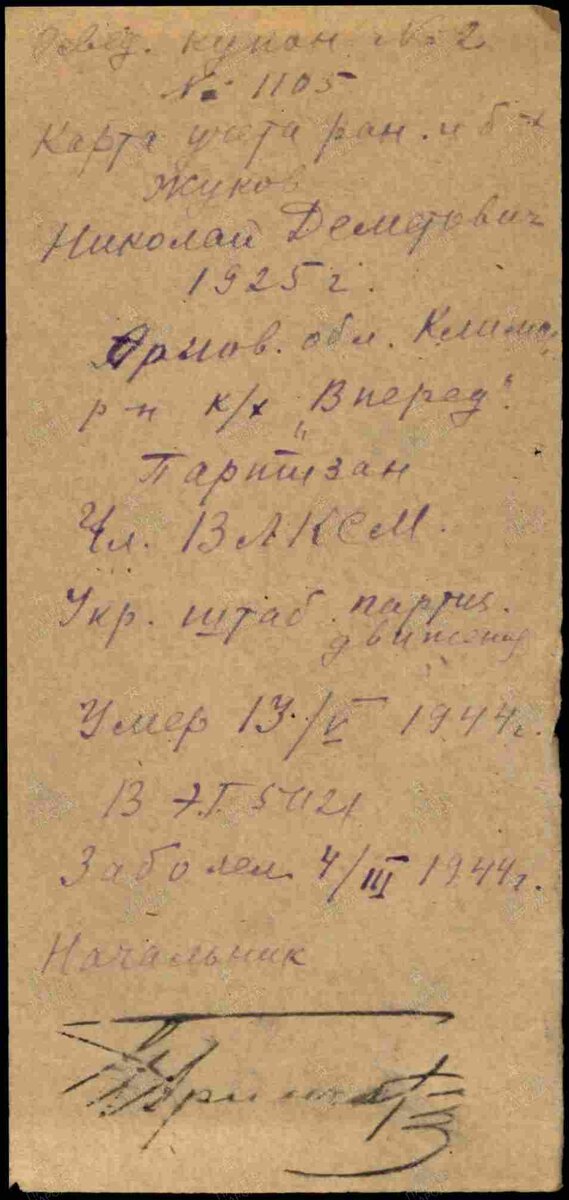 Освед. купон № 2
№ 1105
Карта учета ран. и б-х
Жуков
Николай Деметович
1925 г.
обл. Климо
р-н к/х "Вперед".
Партизан
Чл. ВЛКСМ.
Укр. штаб партиз.
движения
Умер 13/V 1944г.
В
Заболел 4/III 1944г.
Начальник